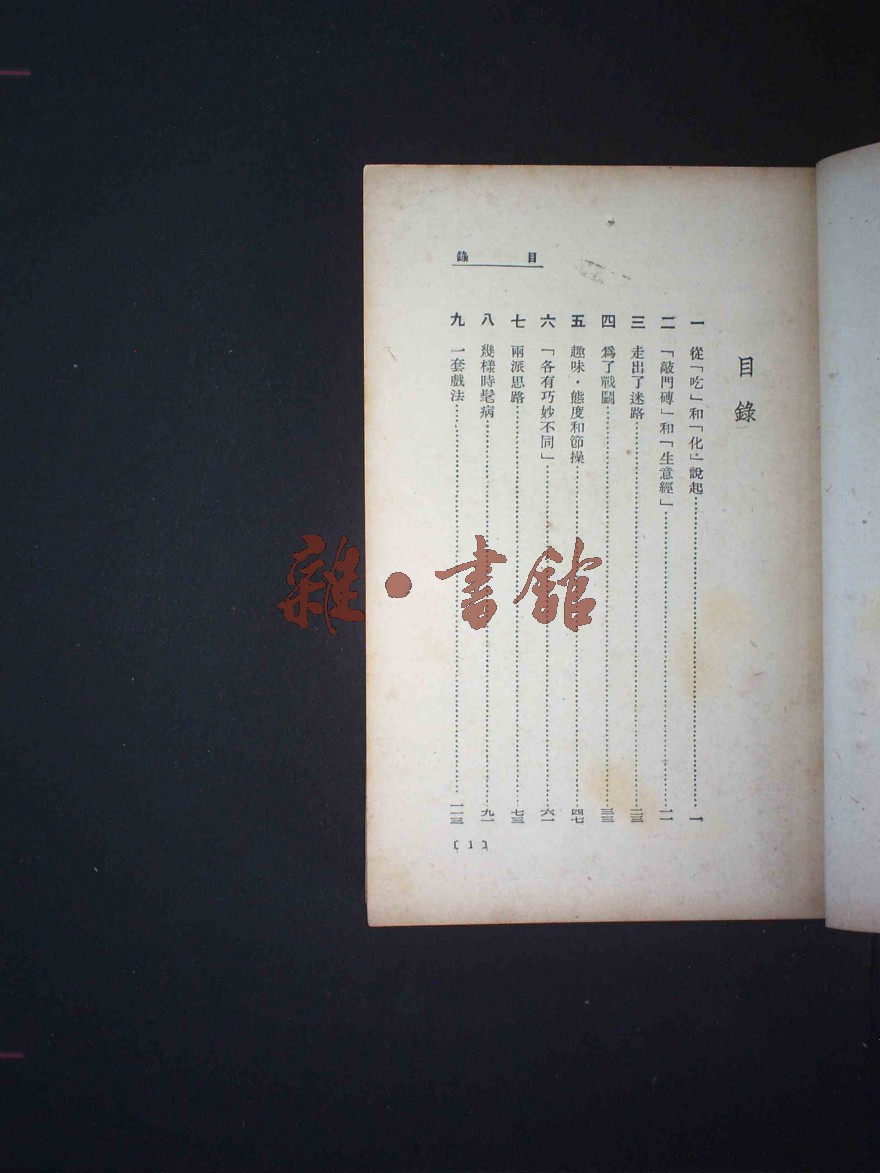 目錄
目錄
一 從「吃」和「化」說起 一
二 「敲門磚」和「生意經」 一一
三 走出了迷路 二三
四 爲了戰鬪 三三
五 趣味·態度和節操 四七
六 「各有巧妙不同」 六一
七 兩派思路 七三
八 幾樣時髦病 九一
九 一套戲法 一一三
〔1〕
雜·書館